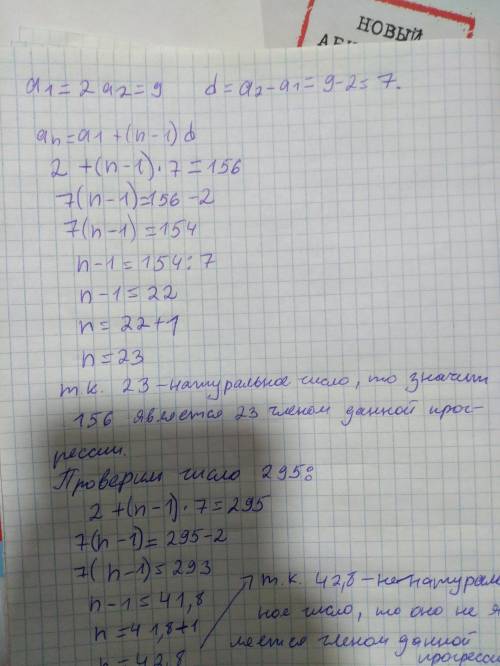 НОВЫЙ
a₁ = 2 a₂ = 9 d = a₂ - a₁ = 9 - 2 = 7.
aₙ = a₁ + (n - 1) d
2 + (n - 1) · 7 = 156
7(n - 1) = 156 - 2
7(n - 1) = 154
n - 1 = 154 : 7
n - 1 = 22
n = 22 + 1
n = 23
т.к. 23 - натуральное число, то значит
156 является 23 членом данной прог-
рессии.
Проверим число 295:
2 + (n - 1) · 7 = 295
7(n - 1) = 295 - 2
7(n - 1) = 293
n - 1 = 41,8
n = 41,8 + 1
n = 42,8
т.к. 42,8 - не натураль
ное число, то оно не я
ляется членом данной
прогресси